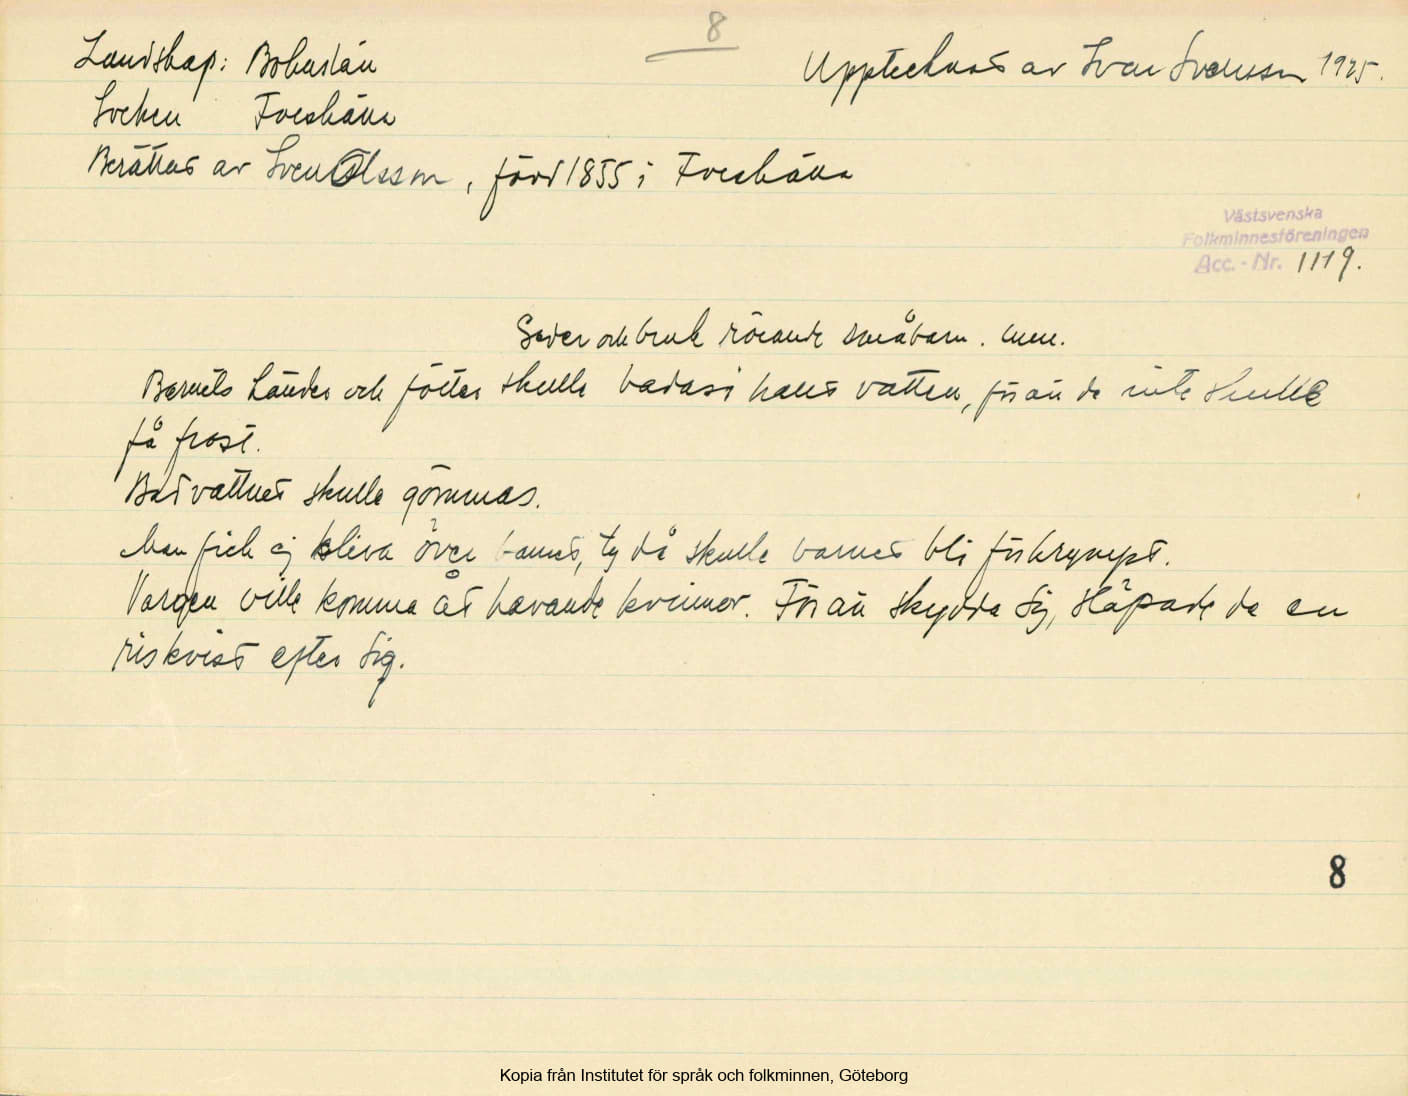 8
Landskap: Bohuslän
Upptecknat av Sven Svensson 1925.
Socken Foss härad
Berättat av Sven Olsson, född 1855 i
Västsvenska
Folkminnesföreningen
Acc. - Nr. 1119.
Seder och bruk rörande småbarn. m.m.
Barnets händer och fötter skulle badas i hans vatten, för att de inte skulle
få frost.
Badvattnet skulle gömmas.
Man fick ej kliva över barnet, ty då skulle barnet bli förkrympt.
Vargen ville komma åt havande kvinnor. För att skydda sig, släpade de en
riskvist efter sig.
8
Kopia från Institutet för språk och folkminnen, Göteborg